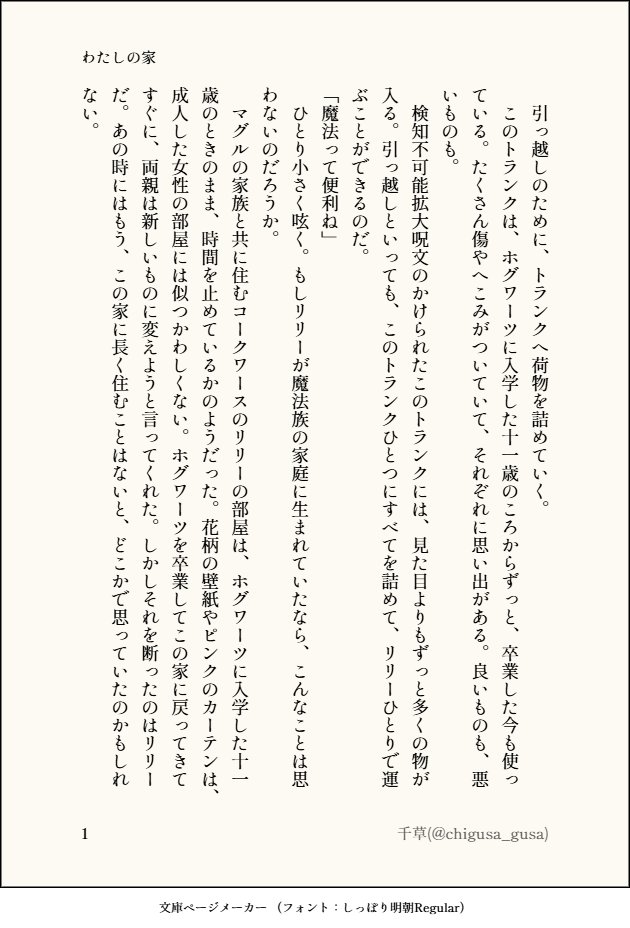 わたしの家
　引っ越しのために、トランクへ荷物を詰めていく。
　このトランクは、ホグワーツに入学した十一歳のころからずっと、卒業した今も使っ
ている。たくさん傷やへこみがついていて、それぞれに思い出がある。良いものも、悪
いものも。
　検知不可能拡大呪文のかけられたこのトランクには、見た目よりもずっと多くの物が
入る。引っ越しといっても、このトランクひとつにすべてを詰めて、リリーひとりで運
ぶことができるのだ。
「魔法って便利ね」
　ひとり小さく呟く。もしリリーが魔法族の家庭に生まれていたなら、こんなことは思
わないのだろうか。
　マグルの家族と共に住むコークワースのリリーの部屋は、ホグワーツに入学した十一
歳のときのまま、時間を止めているかのようだった。花柄の壁紙やピンクのカーテンは、
成人した女性の部屋には似つかわしくない。ホグワーツを卒業してこの家に戻ってきて
すぐに、両親は新しいものに変えようと言ってくれた。しかしそれを断ったのはリリー
だ。あの時にはもう、この家に長く住むことはないと、どこかで思っていたのかもしれ
ない。
1
千草(@chigusa_gusa)
文庫ページメーカー （フォント：しっぽり明朝Regular）